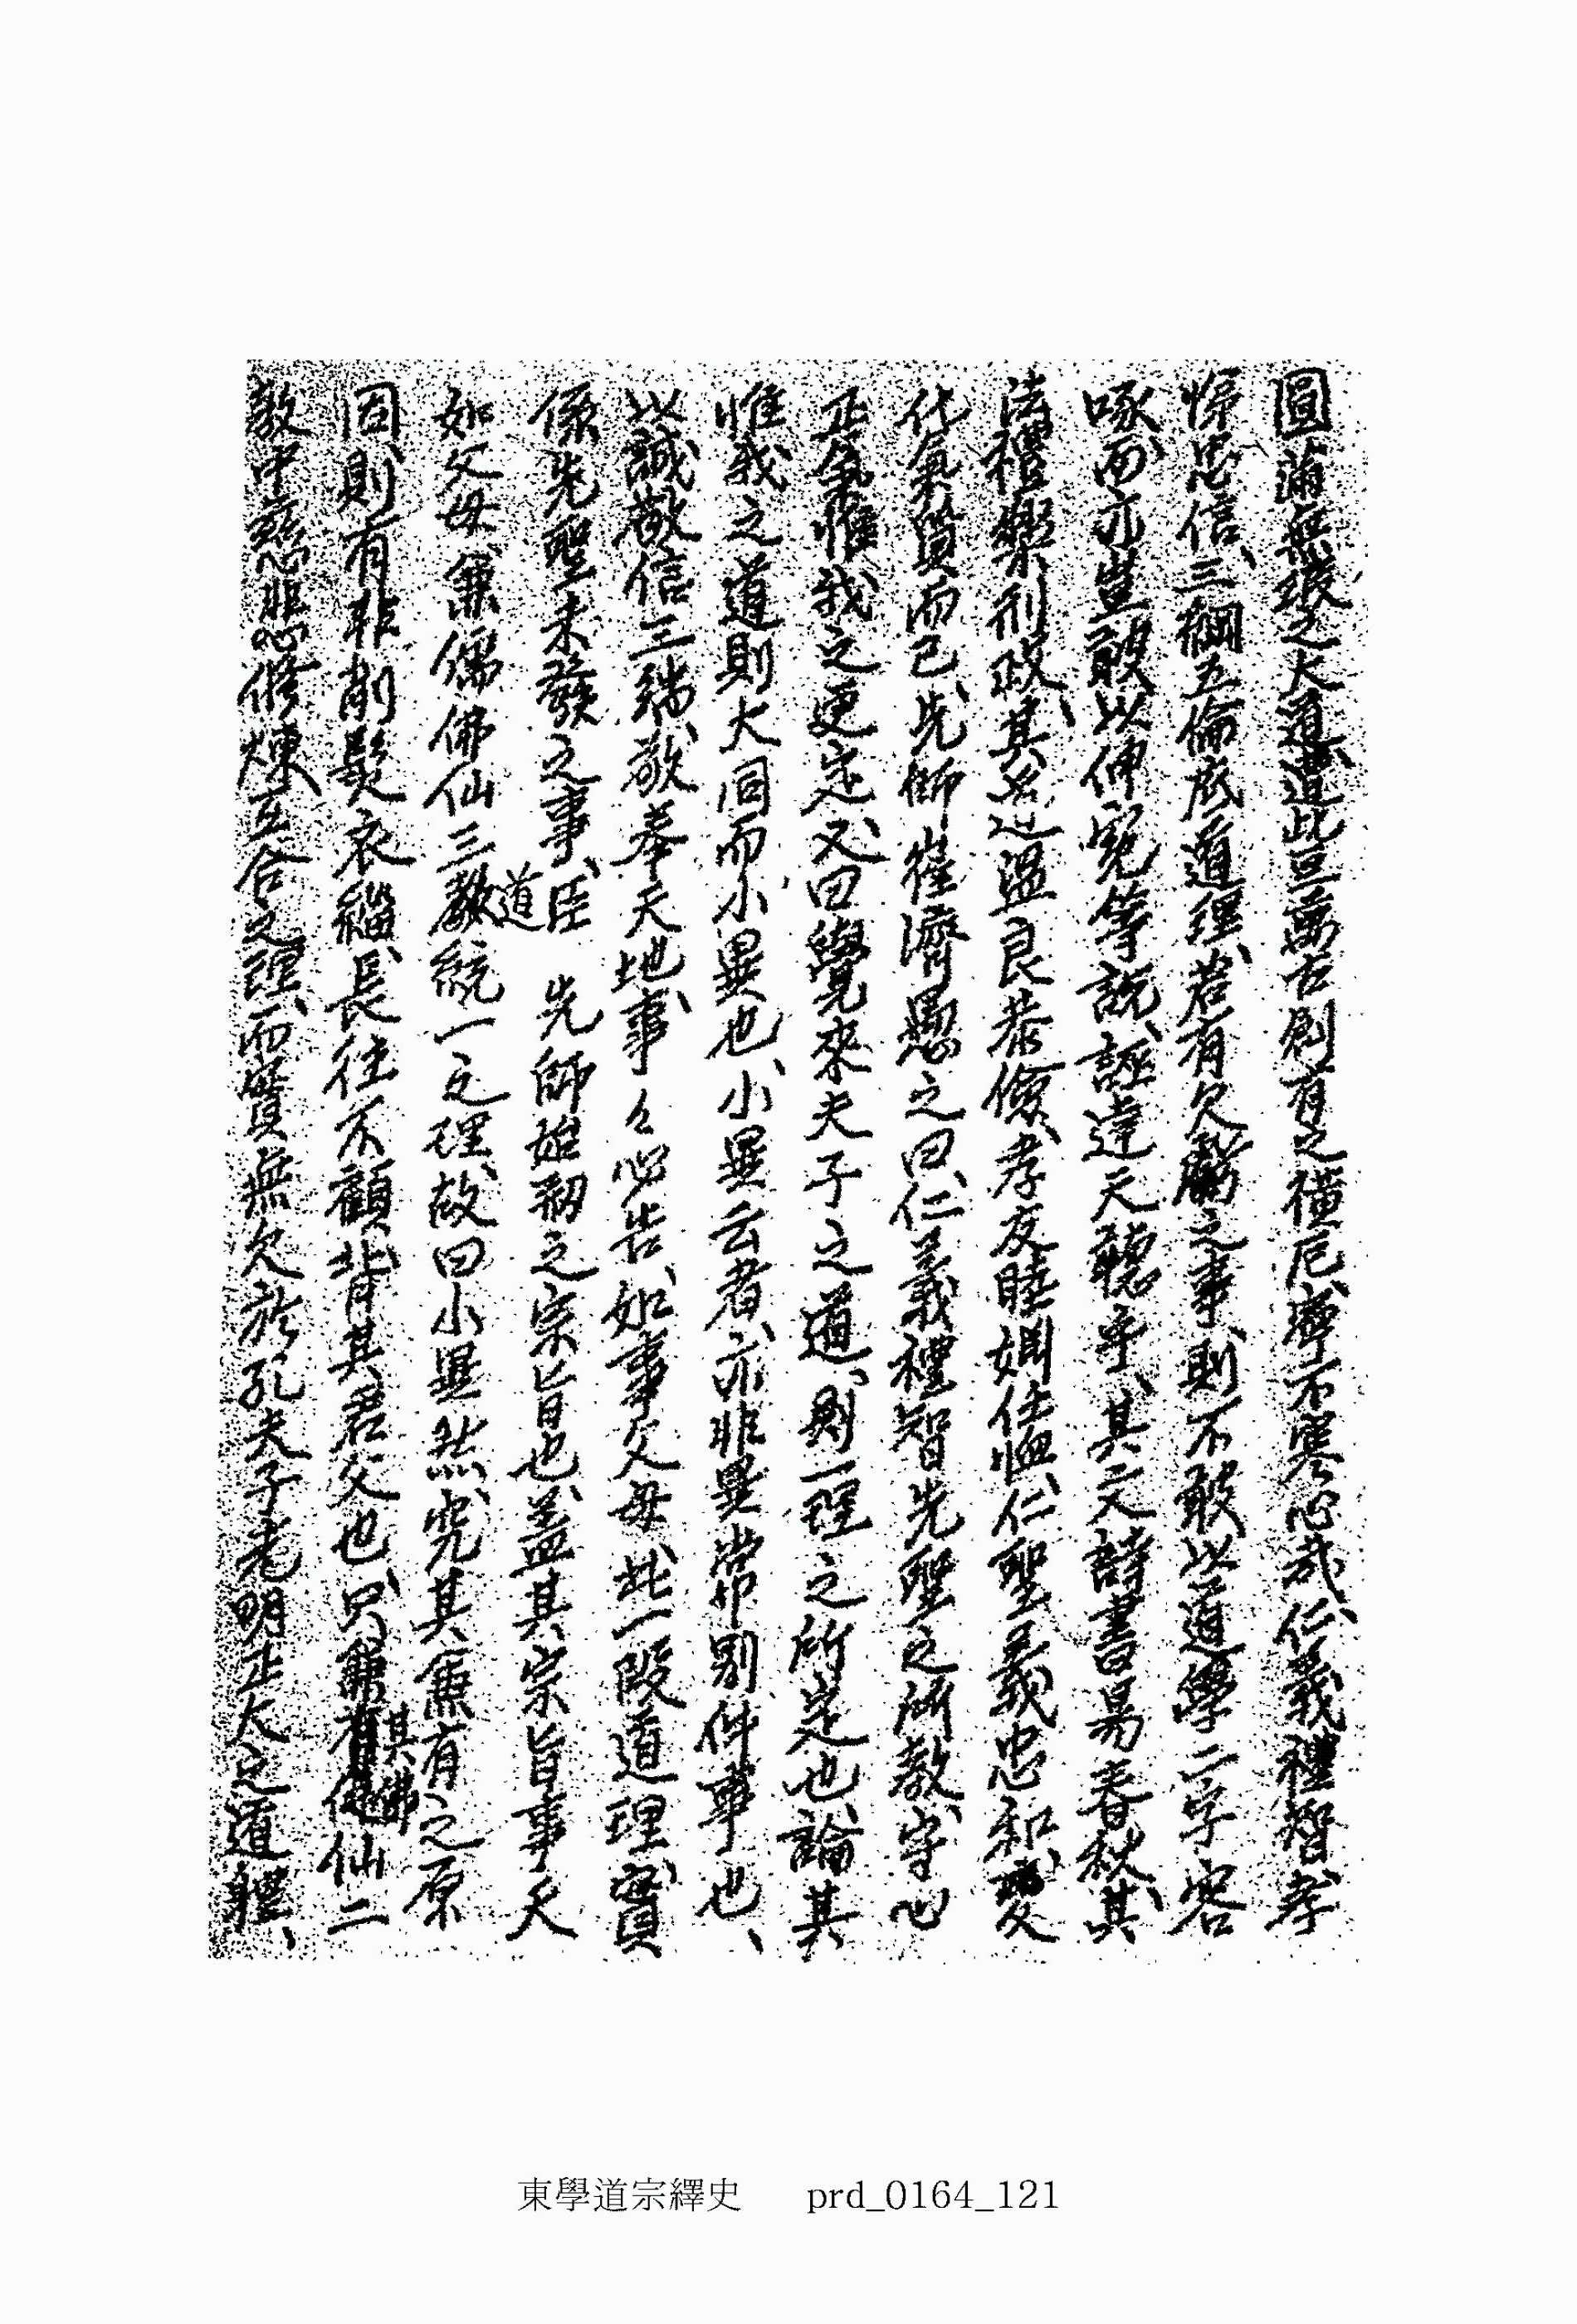 圓滿無缺之大道、遭此亘萬古創有之橫厄、寧不寒心哉、仁義禮智、孝
悌忠信、三綱五倫底道理、若有欠虧之事、則不敢以道學二字容
啄、而亦豈敢以伸寃等說、誣違天聽乎、其文詩書易春秋、其
法禮樂刑政、其 過溫良恭儉、孝友睦婣任恤、仁聖義忠和、變
化氣質而已、先師崔濟愚之曰、仁義禮智先聖之所敎、守心
正氣惟我之更定、又曰覺來夫子之道、則一理之所定也、論其
惟我之道則大同而小異也、小異云者、亦非異常別件事也、
以誠敬信三端、敬奉天地、事々必告、如事父母、此一段道理、實
係先聖未發之事、臣 先師始刱之宗旨也、盖其宗旨事天
道
如父母、兼儒佛仙三敎統一之理、故曰小異然、究其兼有之原
因、則有非削髮衣緇、長往不顧、背其君父也、只兼有 仙二
其佛
敎中慈悲修煉互合之理、而實無欠於孔夫子光明正大之道體、
東學道宗繹史 prd_0164_121